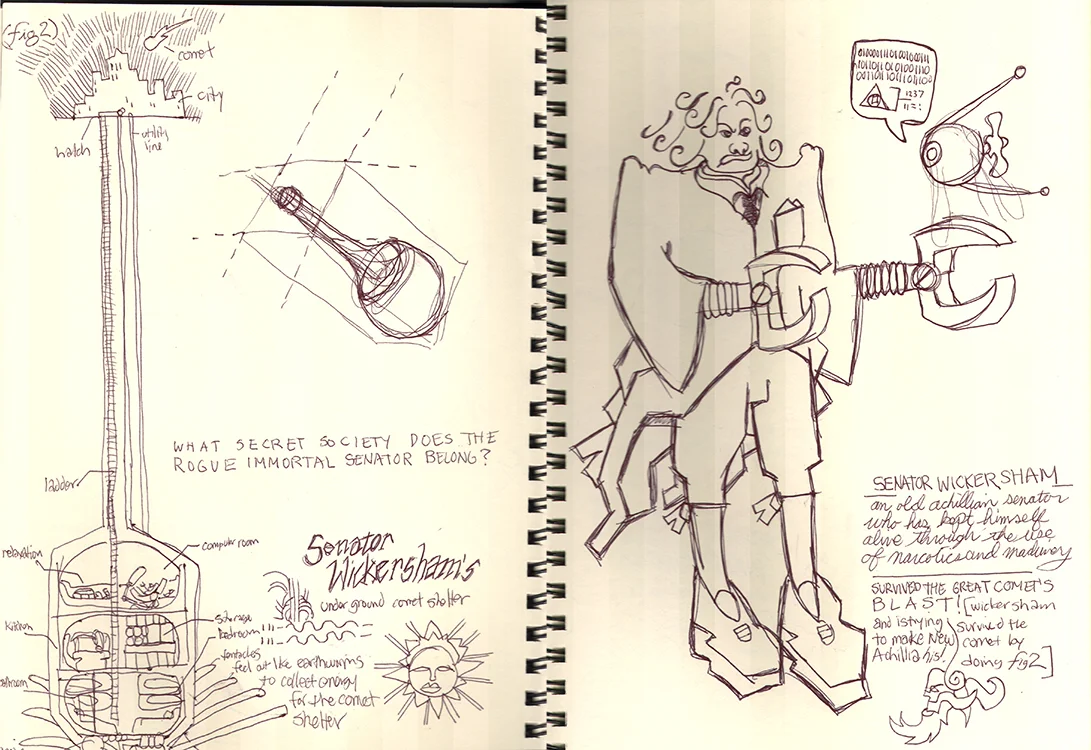 (fig2)
comet
city
hatch
utility
line
WHAT SECRET SOCIETY DOES THE
ROGUE IMMORTAL SENATOR BELONG?
ladder
relaxation
computer room
Kitchen
storage
bedroom
Senator
Wickersham's
underground comet shelter
tentacles
feel out like earthworms
to collect energy
for the comet
shelter
010001110100100111
1010110100100110
00110110110110
1237
11=:
SENATOR WICKERSHAM
an old achillian senator
who has kept himself
alive through the use
of narcotics and
SURVIVED THE GREAT COMET'S
BLAST!
and is trying
to make New
Achillia his!
[wickersham
survived the
comet by
doing fig2]